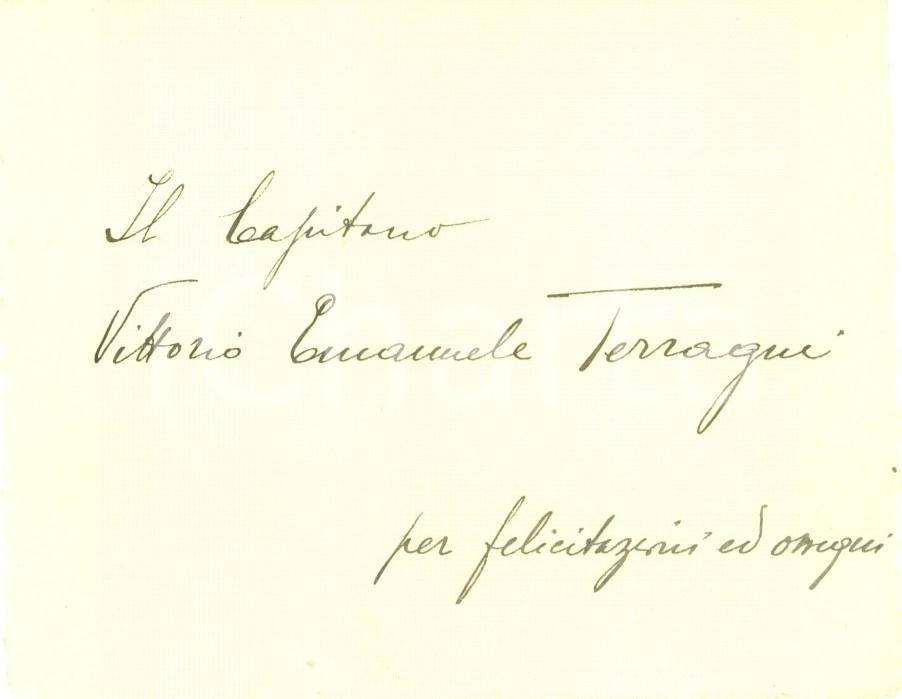 Il Capitano
Vittorio Emanuele Terragni
per felicitazioni ed ossequi